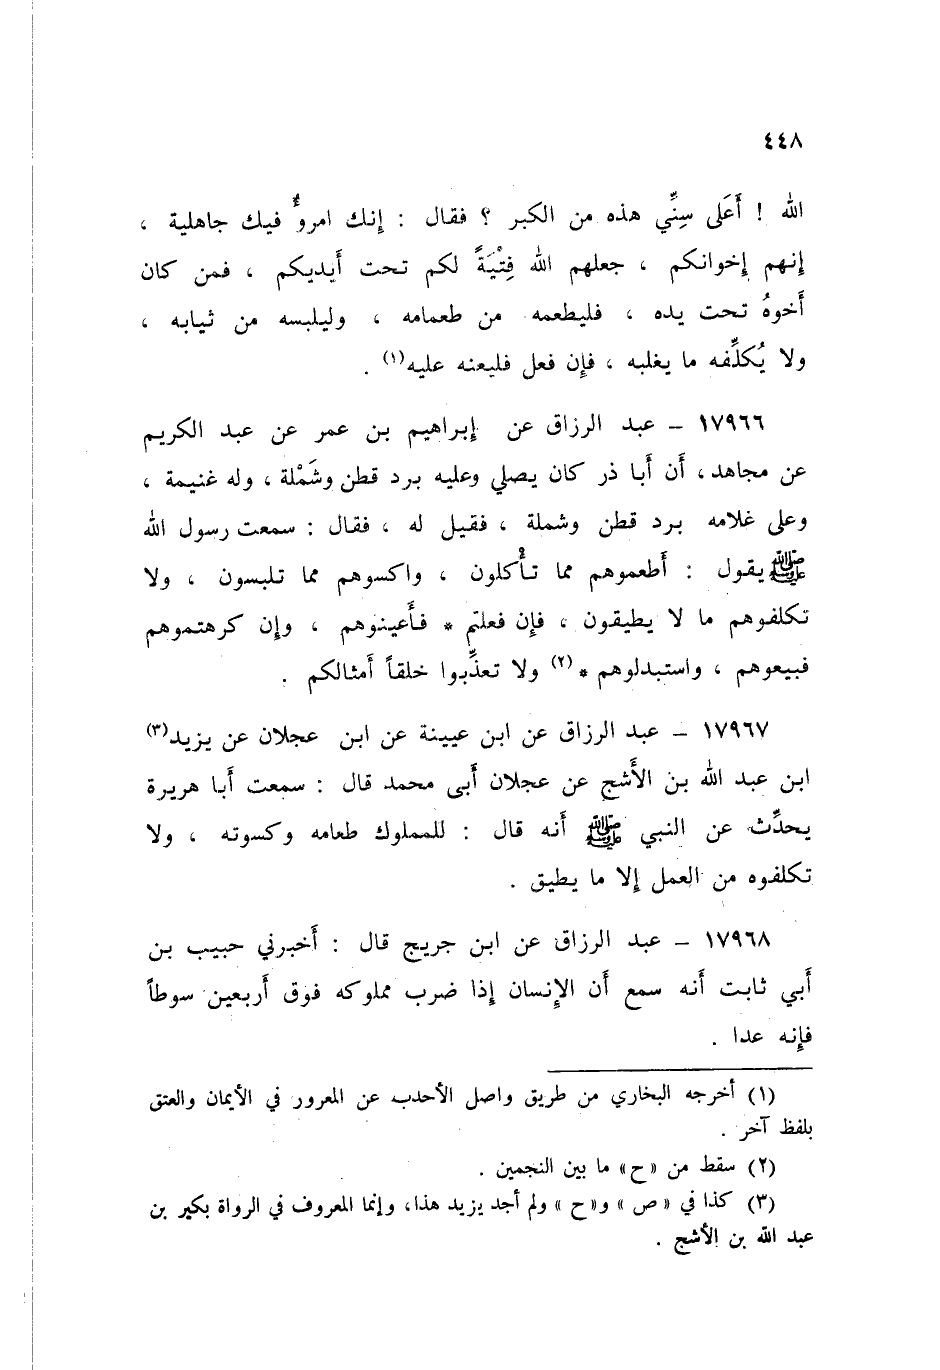 ٤٤٨
الله ! أَعَلى سِنِّي هذه من الكبر ؟ فقال : إنك امروٌ فيك جاهلية ،
إنهم إخوانكم ، جعلهم الله فِتْيَةً لكم تحت أيديكم ، فمن كان
أَخوهُ تحت يده ، فليطعمه من طعمامه ، وليلبسه من ثيابه ،
ولا يُكلِّفه ما يغلبه ، فإن فعل فليعنه عليه(١) .
١٧٩٦٦ – عبد الرزاق عن إبراهيم بن عمر عن عبد الكريم
عن مجاهد، أن أَبا ذر كان يصلي وعليه برد قطن وشَمْلة ، وله غنيمة ،
وعلى غلامه برد قطن وشملة ، فقيل له ، فقال : سمعت رسول الله
ﷺ يقول : أطعموهم مما تأْكلون ، واكسوهم مما تلبسون ، ولا
تكلفوهم ما لا يطيقون ، فإن فعلتم * فأَعينوهم ، وإن كرهتموهم
فبيعوهم ، واستبدلوهم *(٢) ولا تعذِّبوا خلقاً أمثالكم .
١٧٩٦٧ – عبد الرزاق عن ابن عيينة عن ابن عجلان عن يزيد(٣)
ابن عبد الله بن الأَشج عن عجلان أَبى محمد قال : سمعت أَبا هريرة
يحدِّث عن النبي ﷺ أَنه قال : للمملوك طعامه وكسوته ، ولا
تكلفوه من العمل إلا ما يطيق .
١٧٩٦٨ – عبد الرزاق عن ابن جريج قال : أَخبرني حبيب بن
أَبي ثابت أَنه سمع أَن الإنسان إذا ضرب مملوكه فوق أَربعين سوطاً
فإنه عدا .
(١) أخرجه البخاري من طريق واصل الأحدب عن المعرور في الأيمان والعتق
بلفظ آخر .
(٢) سقط من «ح» ما بين النجمين .
(٣) كذا في «ص» و«ح» ولم أجد يزيد هذا، وإنما المعروف في الرواة بكير بن
عبد الله بن الأشج .